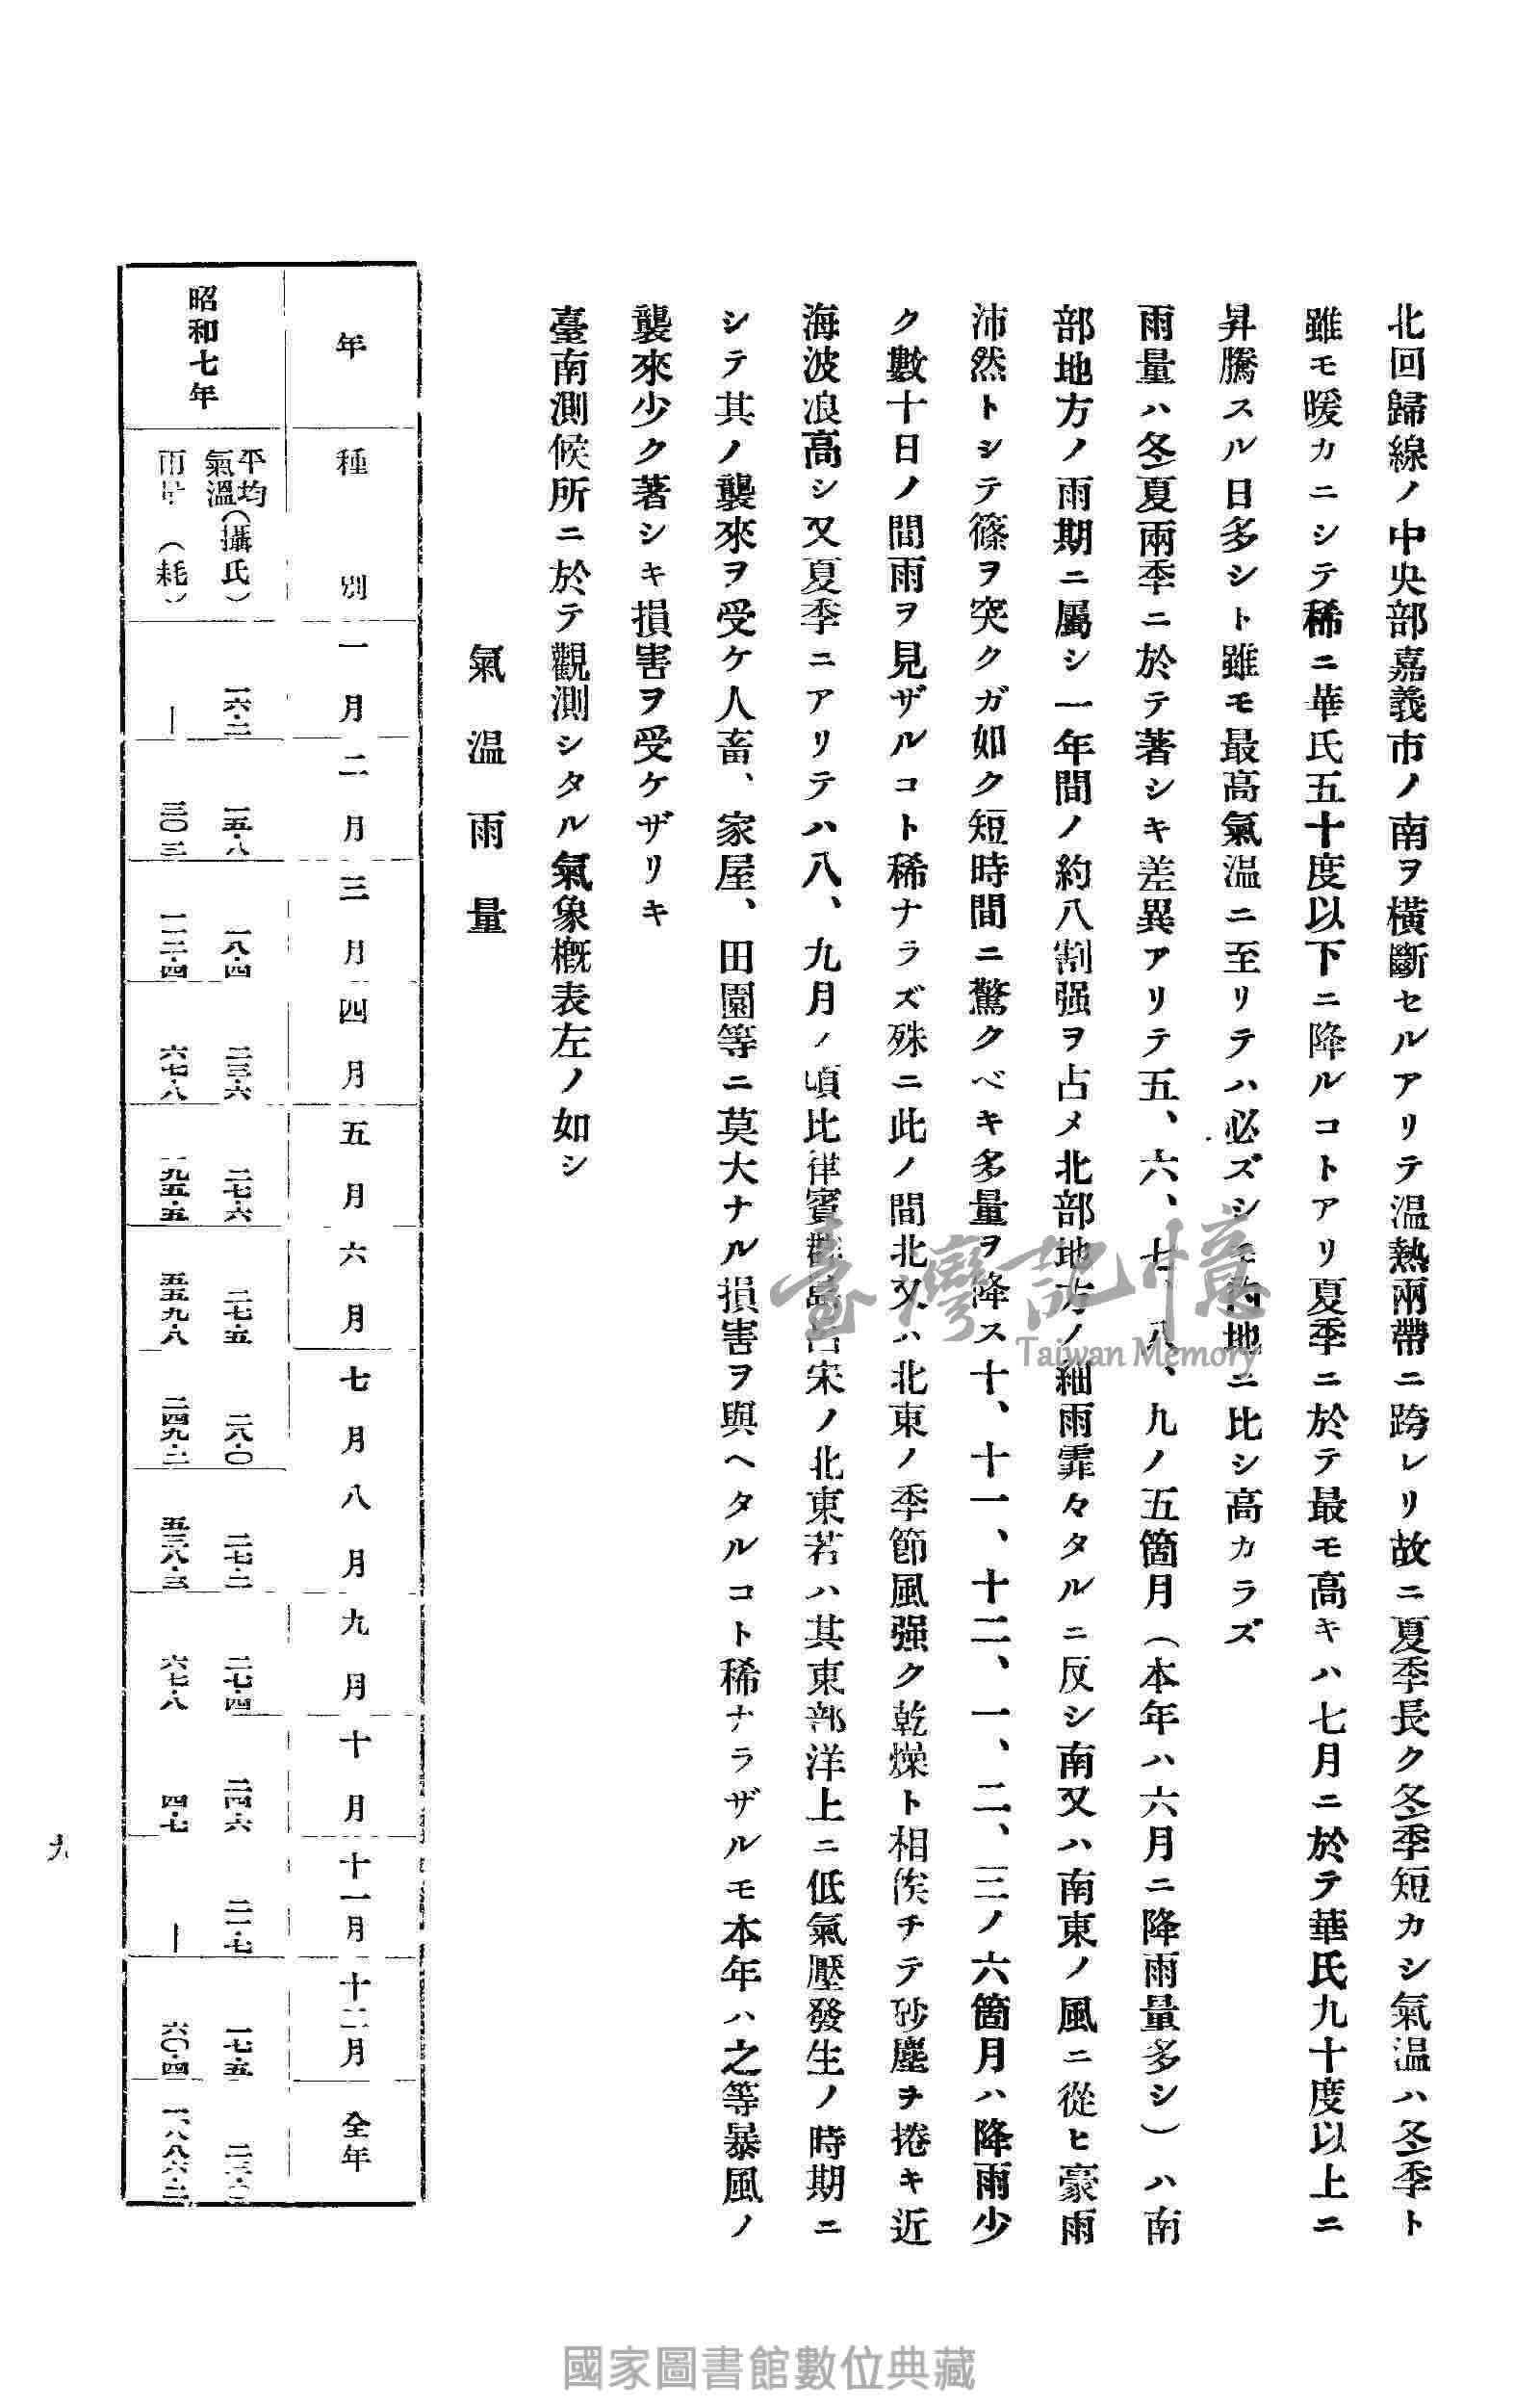 北回歸線ノ中央部嘉義市ノ南ヲ橫斷セルアリテ温熱兩帶ニ跨レリ故ニ夏季長ク冬季短カシ氣温ハ冬季ト
雖モ暖カニシテ稀ニ華氏五十度以下ニ降ルコトアリ夏季ニ於テ最モ高キハ七月ニ於テ華氏九十度以上ニ
昇騰スル日多シト雖モ最高氣温ニ至リテハ必ズシモ內地ニ比シ高カラズ
雨量ハ冬夏兩季ニ於テ著シキ差異アリテ五、六、七、八、九ノ五箇月（本年ハ六月ニ降雨量多シ）ハ南
部地方ノ雨期ニ屬シ一年間ノ約八割强ヲ占メ北部地方ノ細雨霏々タルニ反シ南又ハ南東ノ風ニ從ヒ豪雨
沛然トシテ篠ヲ突クガ如ク短時間ニ驚クベキ多量ヲ降ス十、十一、十二、一、二、三ノ六箇月ハ降雨少
ク數十日ノ間雨ヲ見ザルコト稀ナラズ殊ニ此ノ間北又ハ北東ノ季節風强ク乾燥ト相俟チテ砂塵ヲ捲キ近
海波浪高シ又夏季ニアリテハ八、九月ノ頃比律賓群島呂宋ノ北東若ハ其東部洋上ニ低氣壓發生ノ時期ニ
シテ其ノ襲來ヲ受ケ人畜、家屋、田園等ニ莫大ナル損害ヲ與ヘタルコト稀ナラザルモ本年ハ之等暴風ノ
襲來少ク著シキ損害ヲ受ケザリキ
臺南測候所ニ於テ觀測シタル氣象概表左ノ如シ
氣温雨量
年 種別 一月 二月 三月 四月 五月 六月 七月 八月 九月 十月 十一月 十二月 全年
昭和七年 平均氣溫（攝氏） 一六・二 一五・八 一八・四 二三・六 二七・六 二七・五 二八・〇 二七・二 二七・四 二四・六 二一・七 一七・五
雨量（耗） ― 三〇・三 一一二・四 六七・八 一九五・五 五五九・八 二四九・二 五三八・三 六七・八 四・七 ― 六〇・四 一、八八六・二
九
臺灣記憶
Taiwan Memory
國家圖書館數位典藏